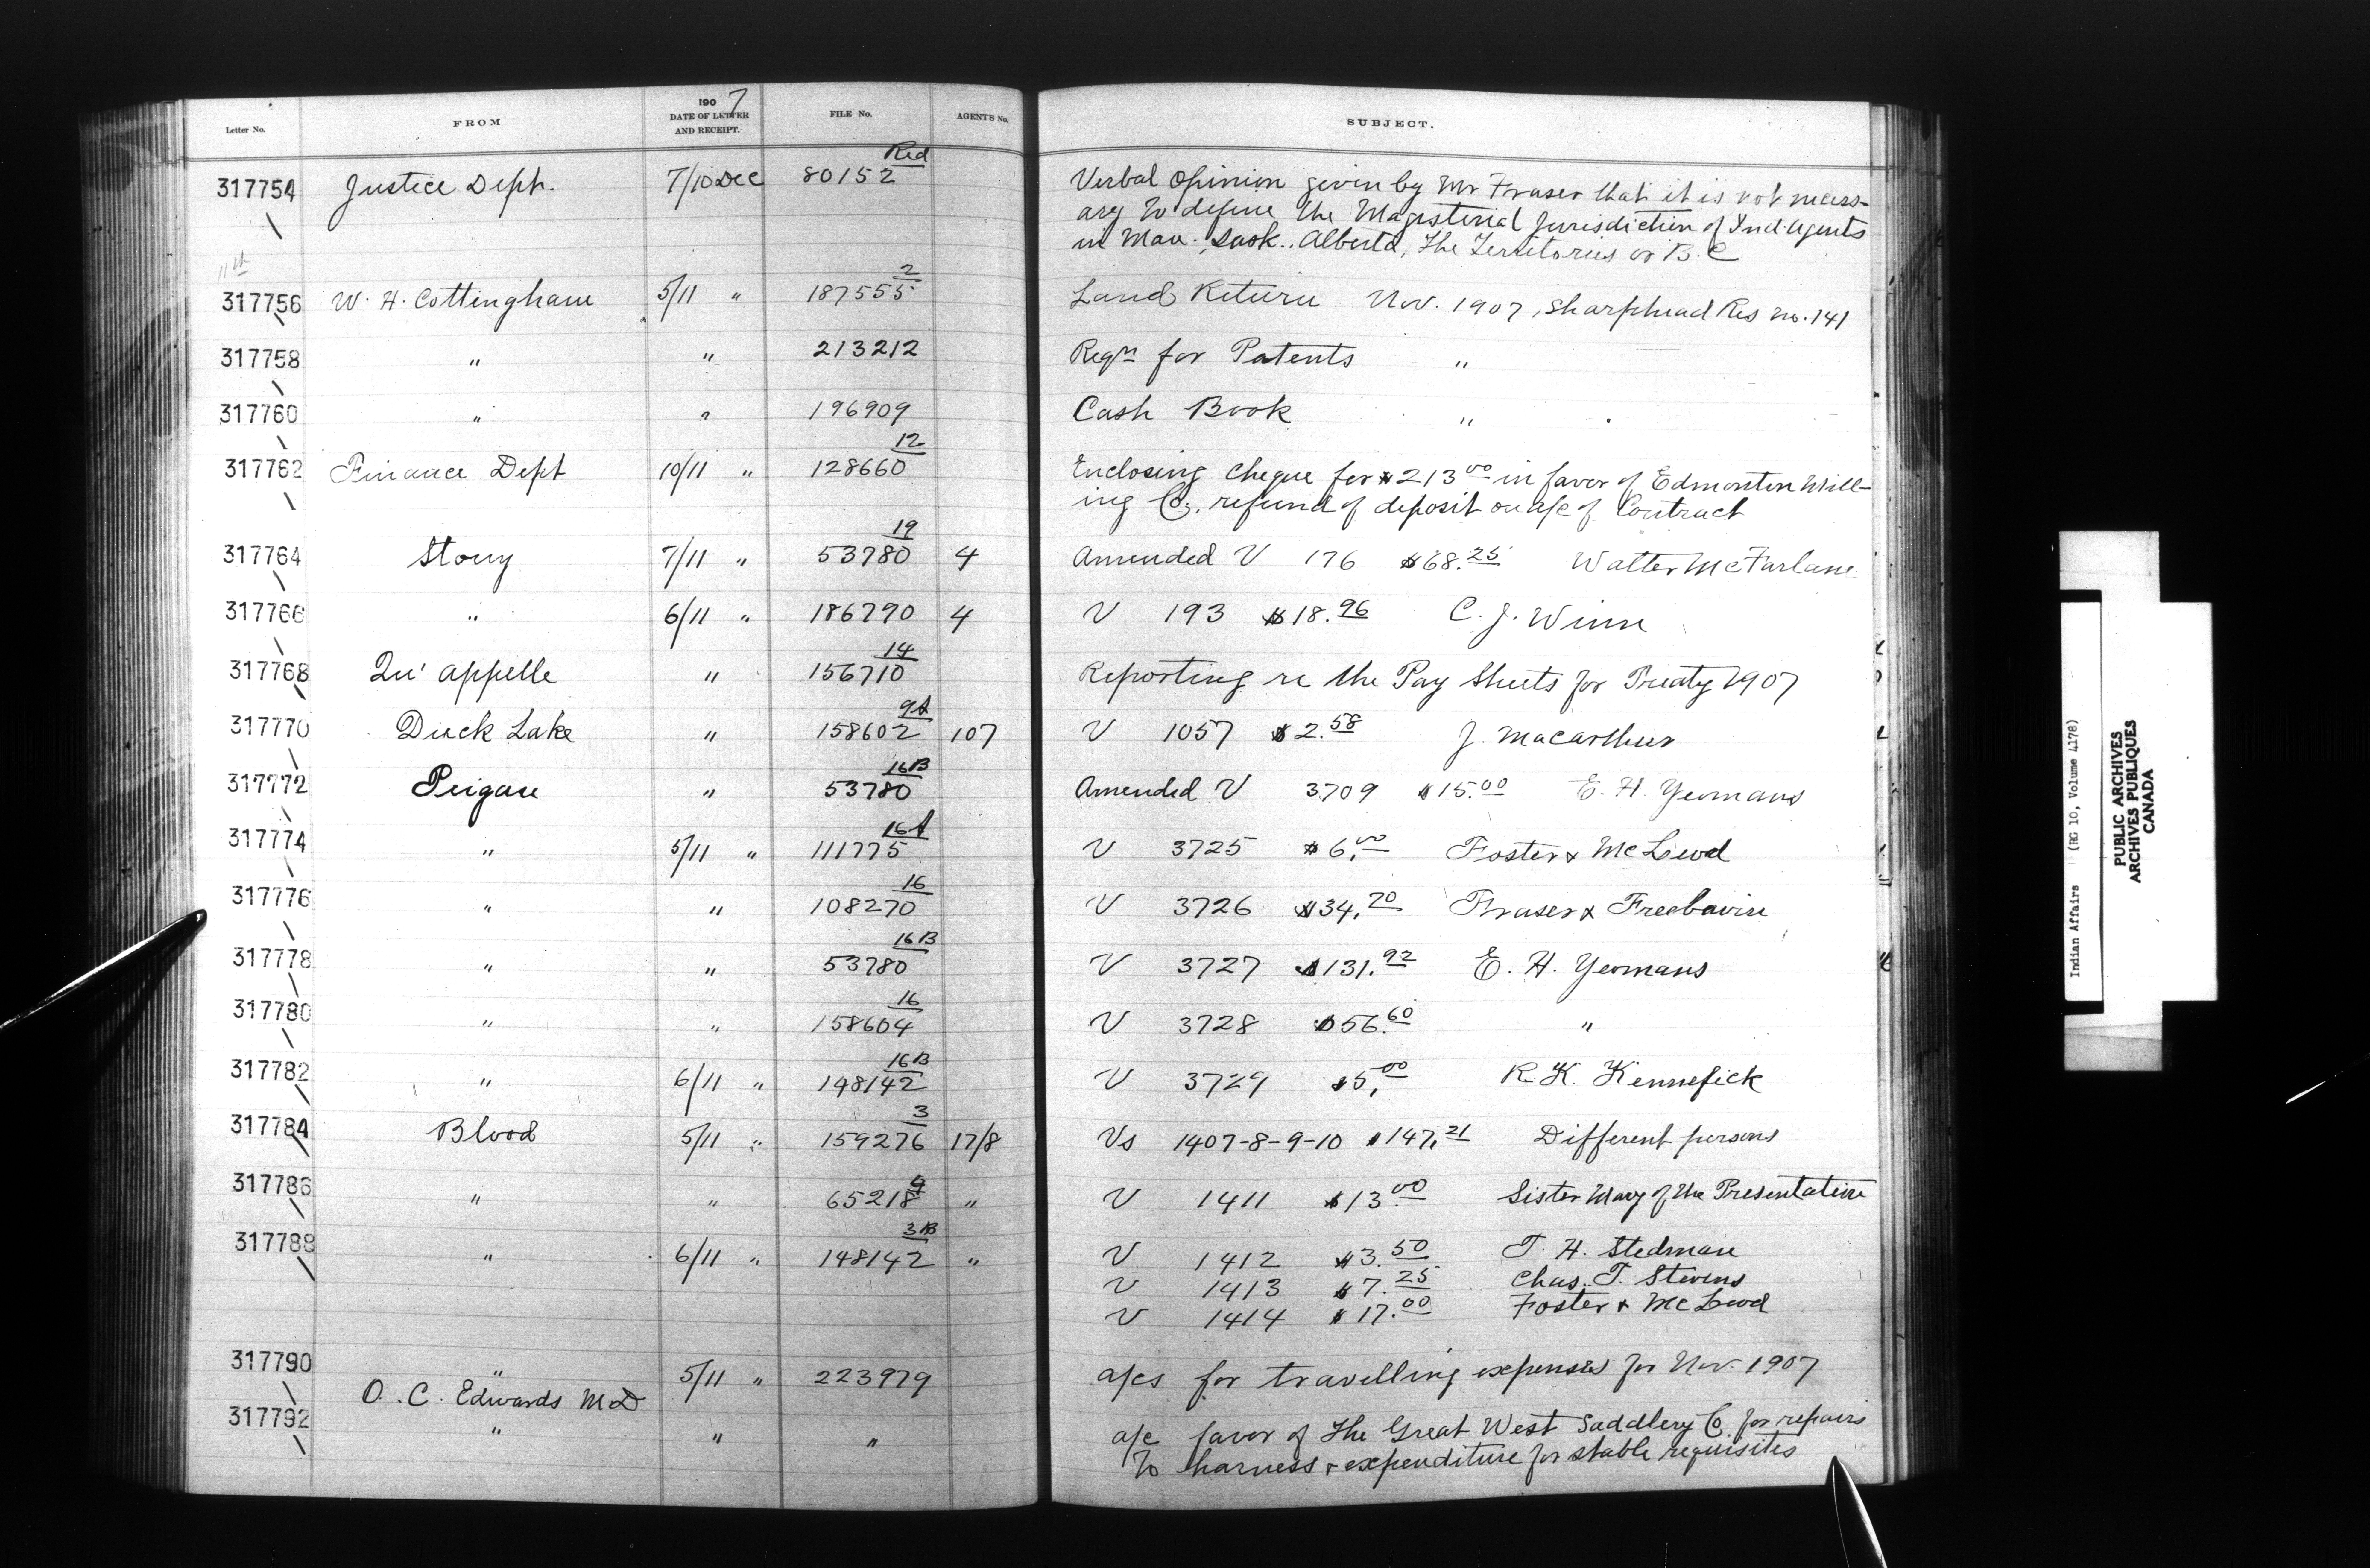 Letter No. FROM 1907 DATE OF LETTER AND RECEIPT. FILE No. AGENT'S No. SUBJECT.
317754 Justice Deptr. 7/10 Dec 80152 Red Verbal opinion given by Mr Fraser that it is not necess-
ary to define the Magisterial Jurisdiction of Ind. Agents
in Man., Sask., Alberta, The Territories or B.C
11th
317756 W. H. Cottingham 5/11 " 187555 2 Land Return Nov. 1907, Sharphead Res no. 141
317758 " " 213212 Reqn for Patents "
317760 " " 196909 Cash Book "
317762 Finance Dept 10/11 " 128660 12 Enclosing cheque for $213.00 in favor of Edmonton Mill-
ing Co., refund of deposit on a/c of Contract
317764 Stony 7/11 " 53780 19 4 Amended V 176 $68.25 Walter McFarlane
317766 " 6/11 " 186790 4 V 193 $18.96 C. J. Winn
317768 Qu'appelle " 156710 14 Reporting re the Pay Sheets for Treaty 1907
317770 Duck Lake " 158602 9A 107 V 1057 $2.58 J. Macarthur
317772 Peigan " 53780 16B Amended V 3709 $15.00 E. H. Yeomans
317774 " 5/11 " 111775 16A V 3725 $6.00 Foster & McLeod
317776 " " 108270 16 V 3726 $34.70 Fraser & Freebairn
317778 " " 53780 16B V 3727 $131.92 E. H. Yeomans
317780 " " 158604 16 V 3728 $56.60 "
317782 " 6/11 " 148142 16B V 3729 $5.00 R. K. Kennefick
317784 Blood 5/11 " 159276 3 17/8 Vs 1407-8-9-10 $147.21 Different persons
317786 " " 65218 " V 1411 $13.00 Sister Mary of the Presentation
317788 " 6/11 " 148142 3B " V 1412 $3.50 T. H. Stedman
V 1413 $7.25 Chas. T. Stevens
V 1414 $17.00 Foster & McLeod
317790 " 5/11 " 223979 a/cs for travelling expenses for Nov. 1907
O. C. Edwards MD
317792 " " " a/c favor of The Great West Saddlery Co. for repairs
to harness & expenditure for stable requisites
Indian Affairs (RG 10, Volume 4178)
PUBLIC ARCHIVES
ARCHIVES PUBLIQUES
CANADA